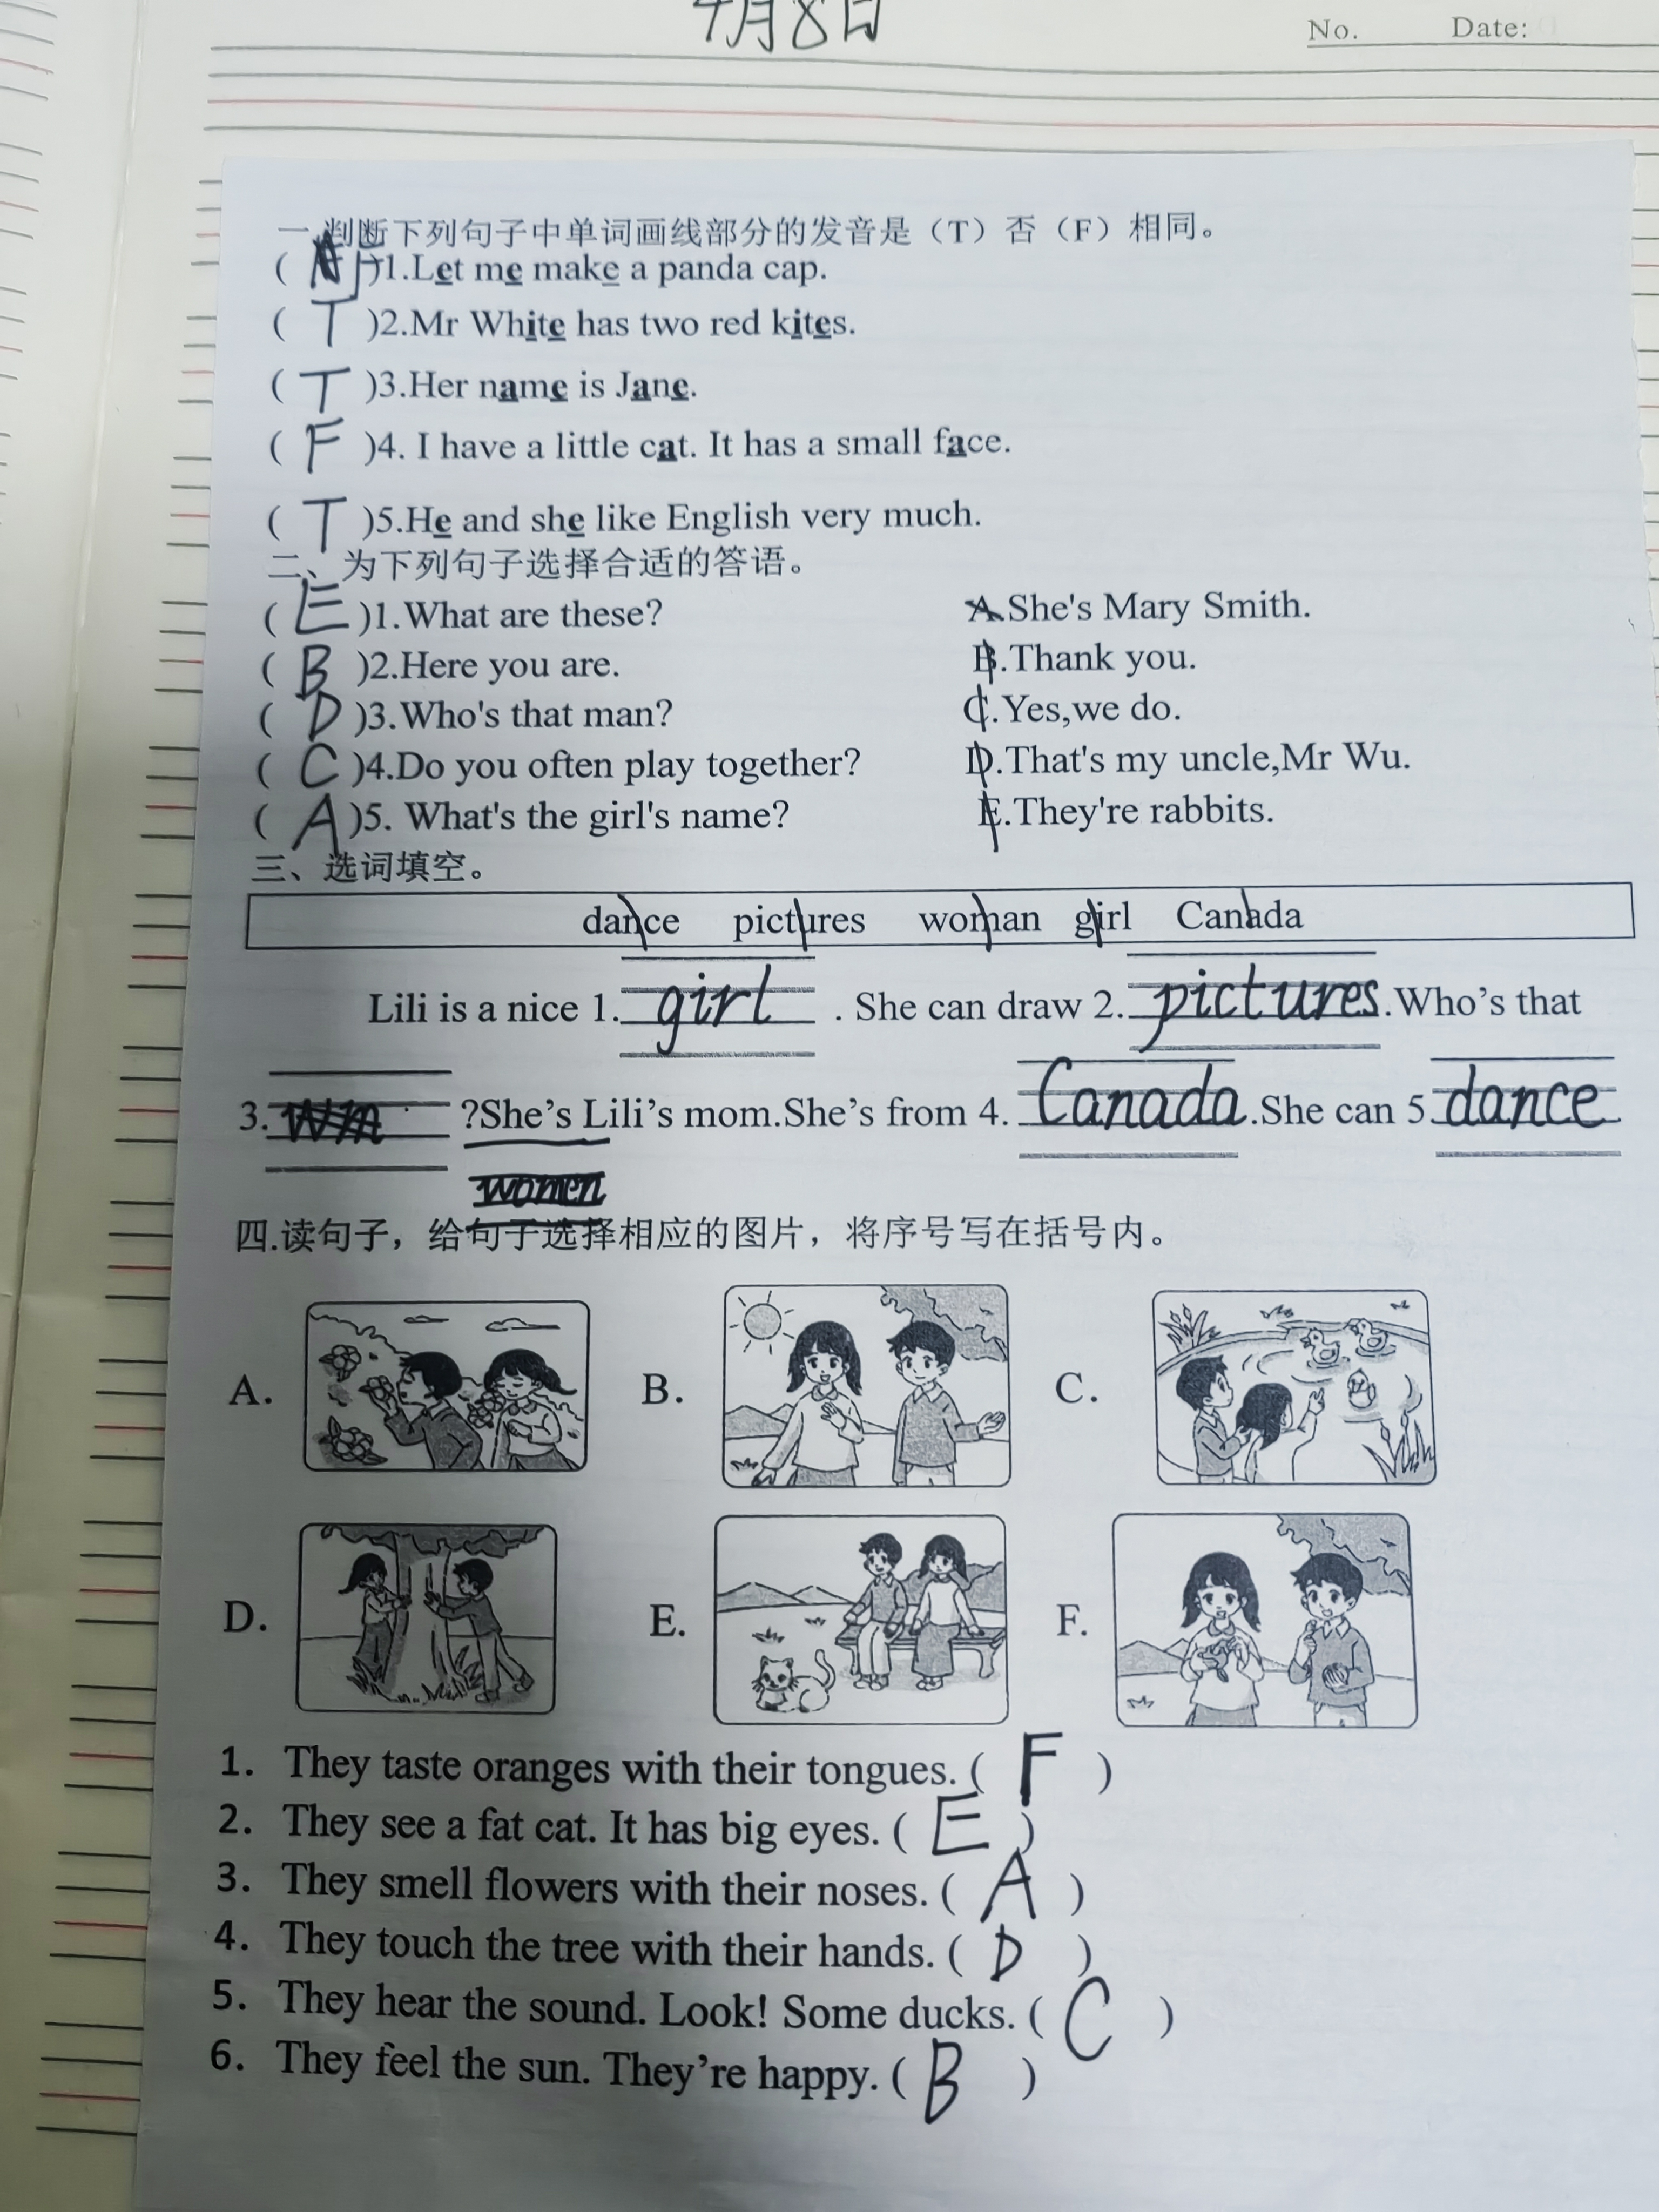 4月8日
No. Date:
一.判断下列句子中单词画线部分的发音是（T）否（F）相同。
( F )1.Let me make a panda cap.
( T )2.Mr White has two red kites.
( T )3.Her name is Jane.
( F )4. I have a little cat. It has a small face.
( T )5.He and she like English very much.
二、为下列句子选择合适的答语。
( E )1.What are these? A.She's Mary Smith.
( B )2.Here you are. B.Thank you.
( D )3.Who's that man? C.Yes,we do.
( C )4.Do you often play together? D.That's my uncle,Mr Wu.
( A )5. What's the girl's name? E.They're rabbits.
三、选词填空。
dance pictures woman girl Canada
Lili is a nice 1. girl . She can draw 2. pictures.Who’s that
3. ?She’s Lili’s mom.She’s from 4. Canada.She can 5.dance
women
四.读句子，给句子选择相应的图片，将序号写在括号内。
A. B. C.
D. E. F.
1. They taste oranges with their tongues. ( F )
2. They see a fat cat. It has big eyes. ( E )
3. They smell flowers with their noses. ( A )
4. They touch the tree with their hands. ( D )
5. They hear the sound. Look! Some ducks. ( C )
6. They feel the sun. They’re happy. ( B )